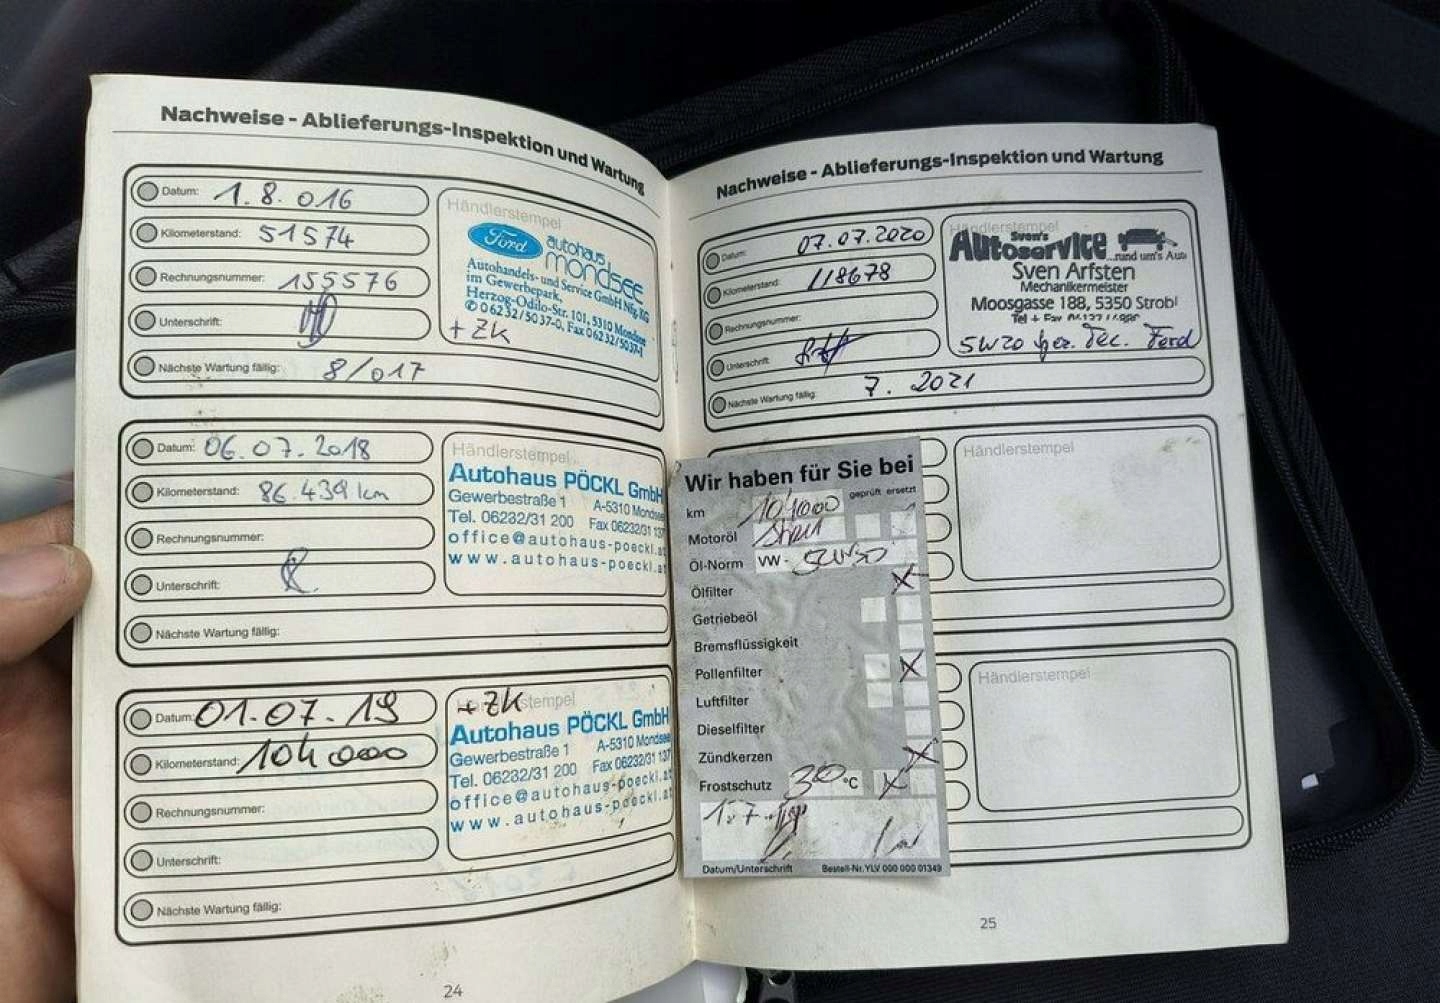 Nachweise - Ablieferungs-Inspektion und Wartung
Datum: 1.8.016
Kilometerstand: 51574
Rechnungsnummer: 155576
Unterschrift:
Nächste Wartung fällig: 8/017
Händlerstempel
Ford autohaus
mondsee
Autohandels- und Service GmbH Nfg. KG
im Gewerbepark,
Herzog-Odilo-Str. 101, 5310 Mondsee
✆ 06232/5037-0, Fax 06232/5037-1
+ ZK
Datum: 06.07.2018
Kilometerstand: 86.439 km
Rechnungsnummer:
Unterschrift:
Nächste Wartung fällig:
Händlerstempel
Autohaus PÖCKL GmbH
Gewerbestraße 1 A-5310 Mondsee
Tel. 06232/31 200 Fax 06232/31 137
office@autohaus-poeckl.at
www.autohaus-poeckl.at
Datum: 01.07.19
Kilometerstand: 104000
Rechnungsnummer:
Unterschrift:
Nächste Wartung fällig:
+ ZK
Händlerstempel
Autohaus PÖCKL GmbH
Gewerbestraße 1 A-5310 Mondsee
Tel. 06232/31 200 Fax 06232/31 137
office@autohaus-poeckl.at
www.autohaus-poeckl.at
24
Nachweise - Ablieferungs-Inspektion und Wartung
Datum: 07.07.2020
Kilometerstand: 118678
Rechnungsnummer:
Unterschrift:
Nächste Wartung fällig: 7. 2021
Händlerstempel
Sven's
Autoservice
...rund um's Auto
Sven Arfsten
Mechanikermeister
Moosgasse 188, 5350 Strobl
Tel + Fax
5W20
Wir haben für Sie bei
geprüft ersetzt
km 104000
Motoröl
Öl-Norm VW-
Ölfilter X
Getriebeöl
Bremsflüssigkeit
Pollenfilter X
Luftfilter
Dieselfilter
Zündkerzen X
Frostschutz 30 °C X
1.7.
Datum/Unterschrift Bestell-Nr. YLV 000 000 01349
Händlerstempel
Händlerstempel
25